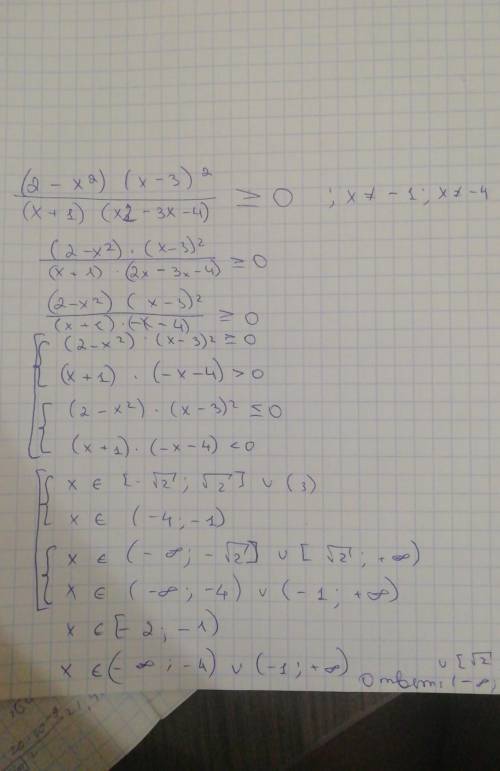 (2 - x²) (x - 3)² / (x + 1) (x2 - 3x - 4) ≥ 0 ; x ≠ - 1 ; x ≠ - 4
(2 - x²) · (x - 3)² / (x + 1) · (2x - 3x - 4) ≥ 0
(2 - x²) (x - 3)² / (x + 1) · (-x - 4) ≥ 0
(2 - x²) · (x - 3)² ≥ 0
(x + 1) · (-x - 4) > 0
(2 - x²) · (x - 3)² ≤ 0
(x + 1) · (-x - 4) < 0
x ∈ [-√2 ; √2] ∪ (3)
x ∈ (-4 ; -1)
x ∈ (-∞ ; -√2] ∪ [√2 ; +∞)
x ∈ (-∞ ; -4) ∪ (-1 ; +∞)
x ∈ [-2 ; -1)
x ∈ (-∞ ; -4) ∪ (-1 ; +∞)
∪ [√2
Ответ: (-∞;